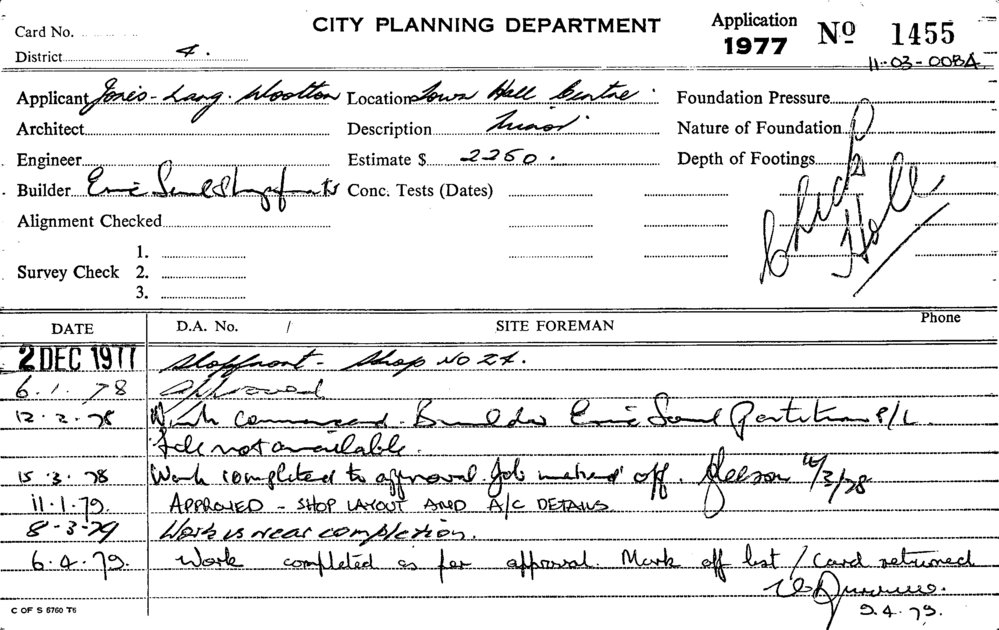 Card No.
CITY PLANNING DEPARTMENT
Application 1977 No 1455
District 4.
11·03-00BA
Applicant Jones-Lang-Wootton Location Town Hall Centre. Foundation Pressure
Architect Description Minor Nature of Foundation
Engineer Estimate $ 2250. Depth of Footings
Builder Eric Conc. Tests (Dates)
Alignment Checked
Hall
1.
Survey Check 2.
3.
DATE D.A. No. / SITE FOREMAN Phone
2 DEC 1977 Shopfront - Shop No 24.
6.1.78 Approved
12.2.78 Work commenced. Builder Eric Partitions P/L
not available.
15.3.78 Work completed to approval. Job marked off. Gleeson 16/3/78
11.1.79. APPROVED - SHOP LAYOUT AND A/C DETAILS
8-3-79 Work is near completion.
6.4.79. Work completed as per approval. Mark off list / Card returned
9.4.79.
C OF S 6760 T6